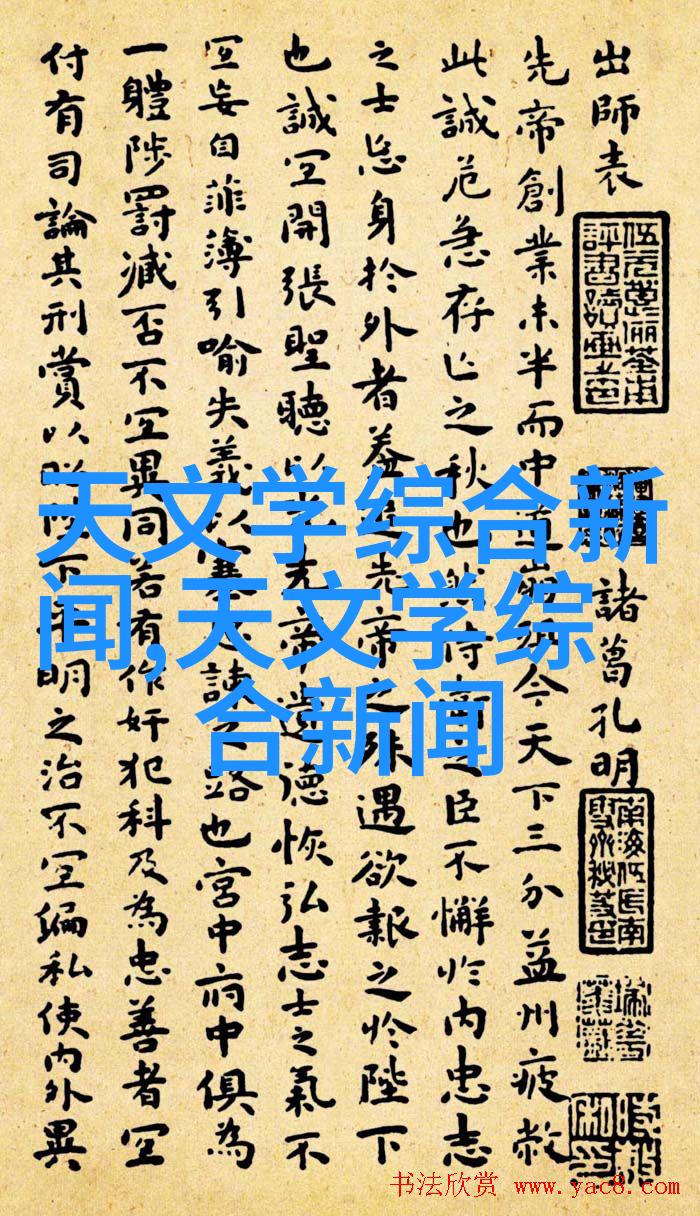 出師表
諸葛孔明
先帝創業未半而中道崩殂今天下三分益州疲敝
此誠危急存亡之秋也然侍衛之臣不懈於內忠志
之士忘身於外者蓋追先帝之殊遇欲報之於陛下
也誠宜開張聖聽以光先帝遺德恢弘志士之氣不
宜妄自菲薄引喻失義以塞忠諫之路也宮中府中俱為
一體陟罰臧否不宜異同若有作奸犯科及為忠善者宜
付有司論其刑賞以昭陛下平明之治不宜偏私使內外異
天文学综合新
闻,天文学综
合新闻
书法欣赏 www.yac8.com